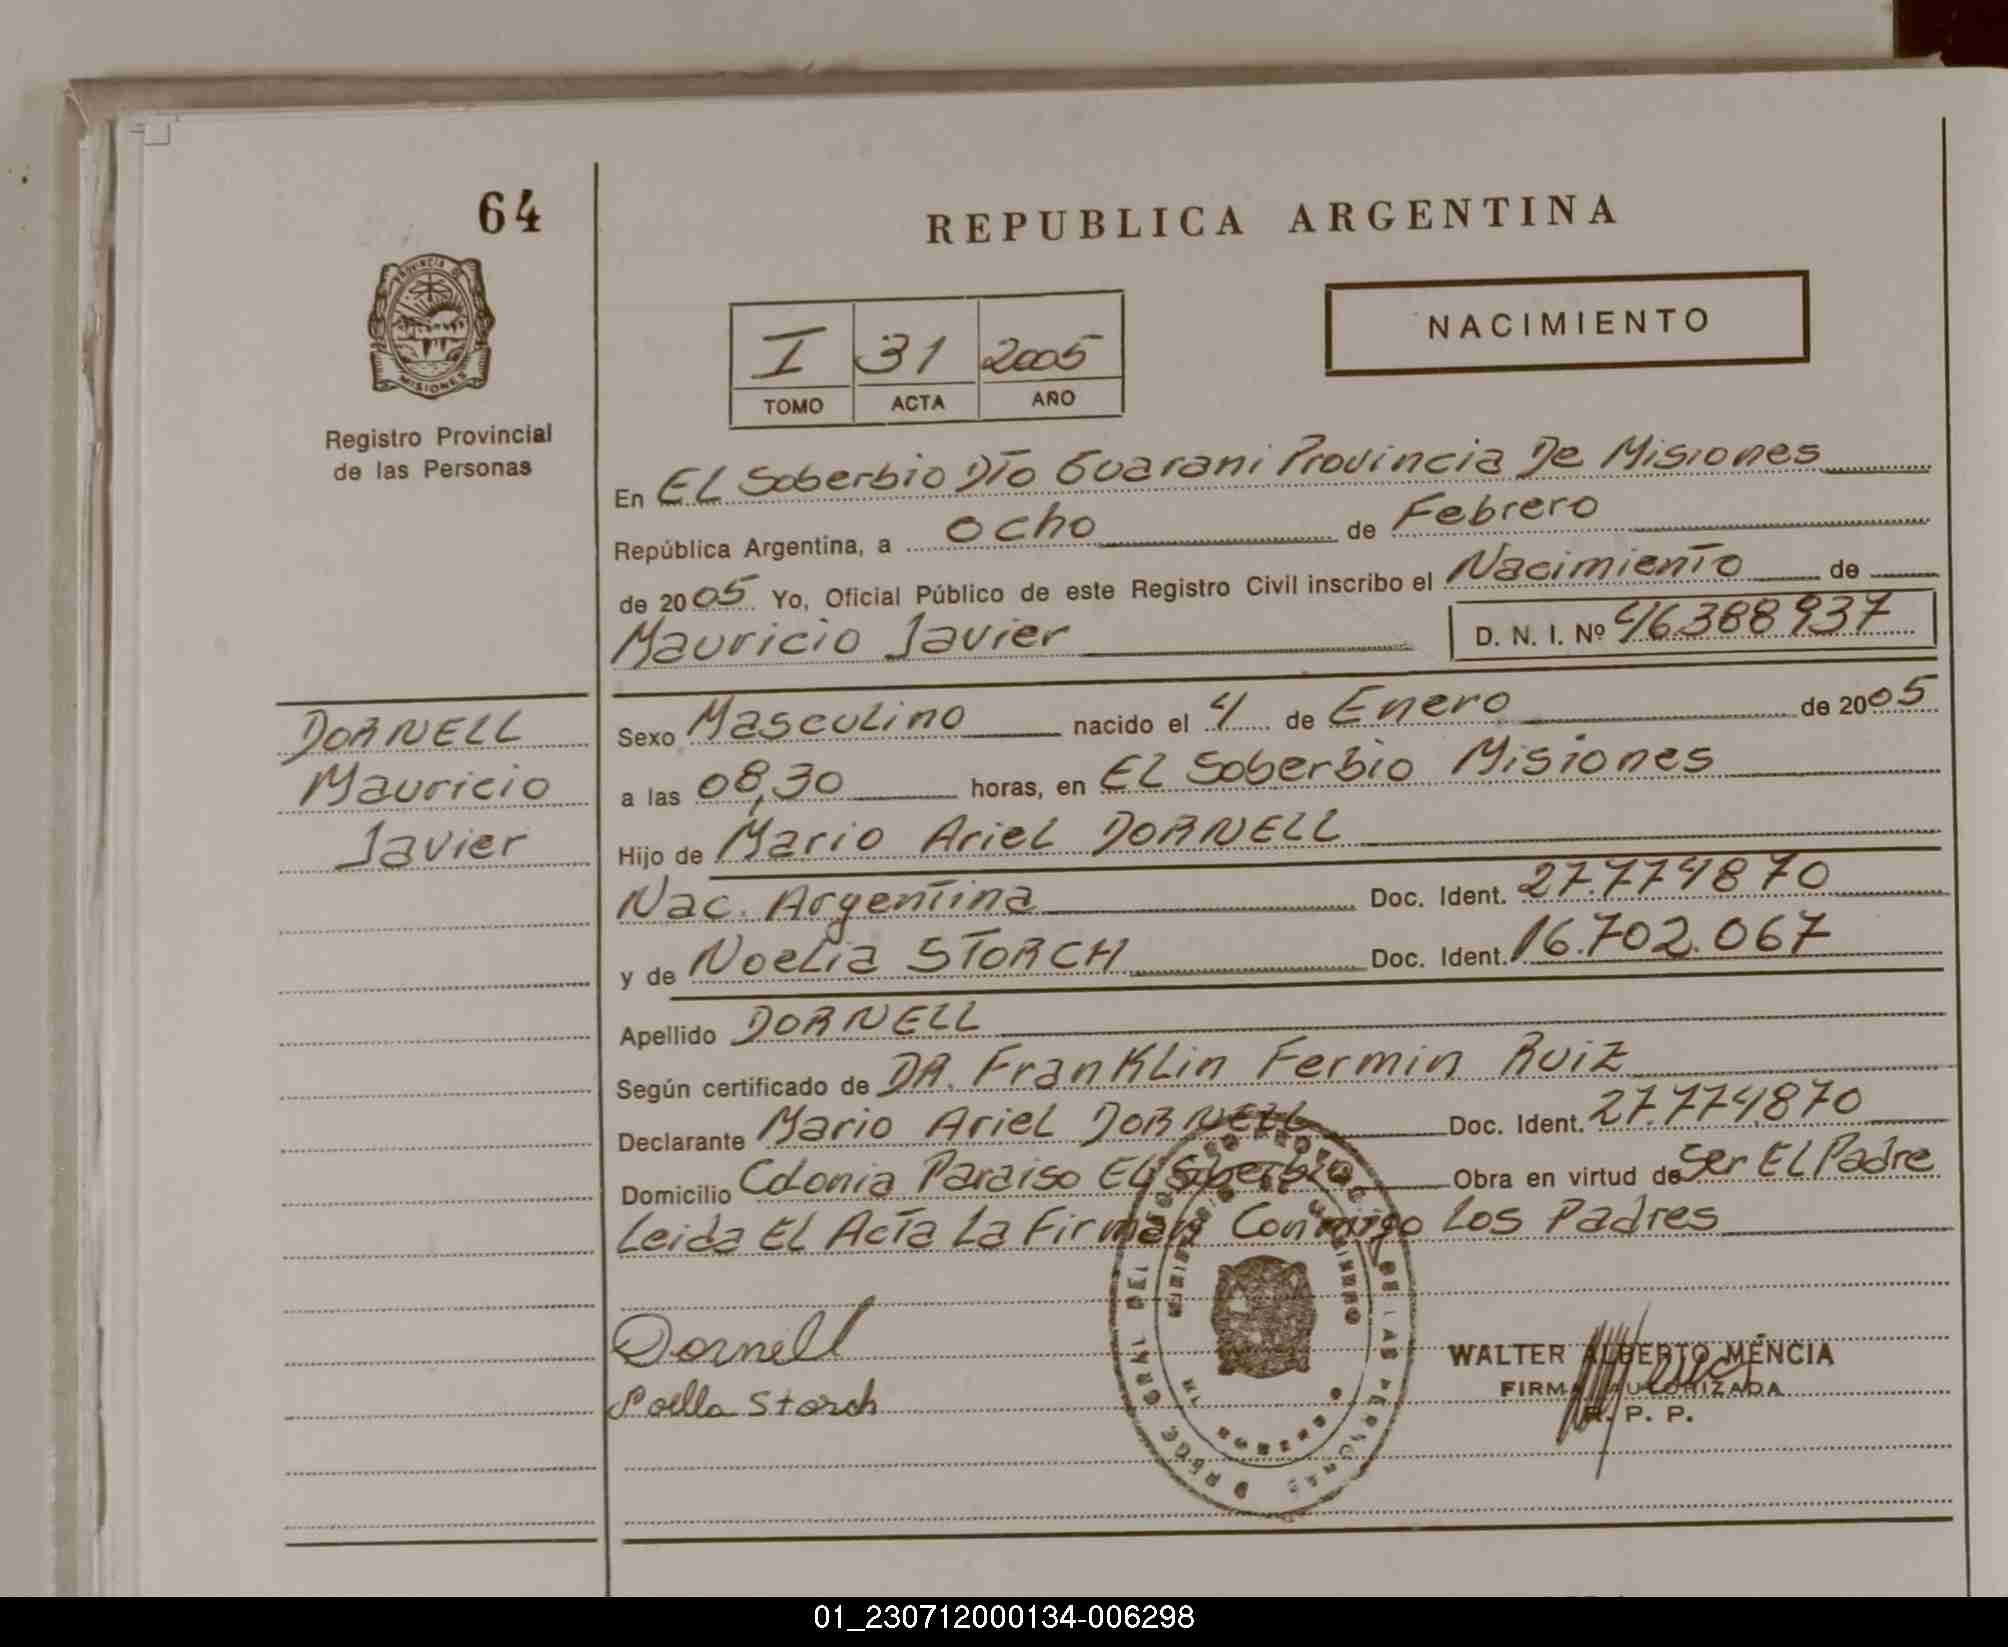 64
REPUBLICA ARGENTINA
PROVINCIA DE
MISIONES
NACIMIENTO
I 31 2005
TOMO ACTA AÑO
Registro Provincial
de las Personas
En EL Soberbio DTo Guarani Provincia De Misiones
República Argentina, a ocho de Febrero
de 2005 Yo, Oficial Público de este Registro Civil inscribo el Nacimiento de
Mauricio Javier D. N. I. Nº 46388937
DORNELL
Mauricio
Javier
Sexo Masculino nacido el 4 de Enero de 2005
a las 08,30 horas, en EL Soberbio Misiones
Hijo de Mario Ariel DORNELL
Nac. Argentina Doc. Ident. 27.774870
y de Noelia STORCH Doc. Ident. 16.702.067
Apellido DORNELL
Según certificado de DR. Franklin Fermin Ruiz
Declarante Mario Ariel DORNELL Doc. Ident. 27.774.870
Domicilio Colonia Paraiso EL Soberbio Obra en virtud de Ser EL Padre
Leida EL Acta La Firman Conmigo Los Padres
Dornell
Storch
WALTER ALBERTO MENCIA
FIRMA AUTORIZADA
R. P. P.
GRAL DEL
DE LAS PERSONAS
01_230712000134-006298